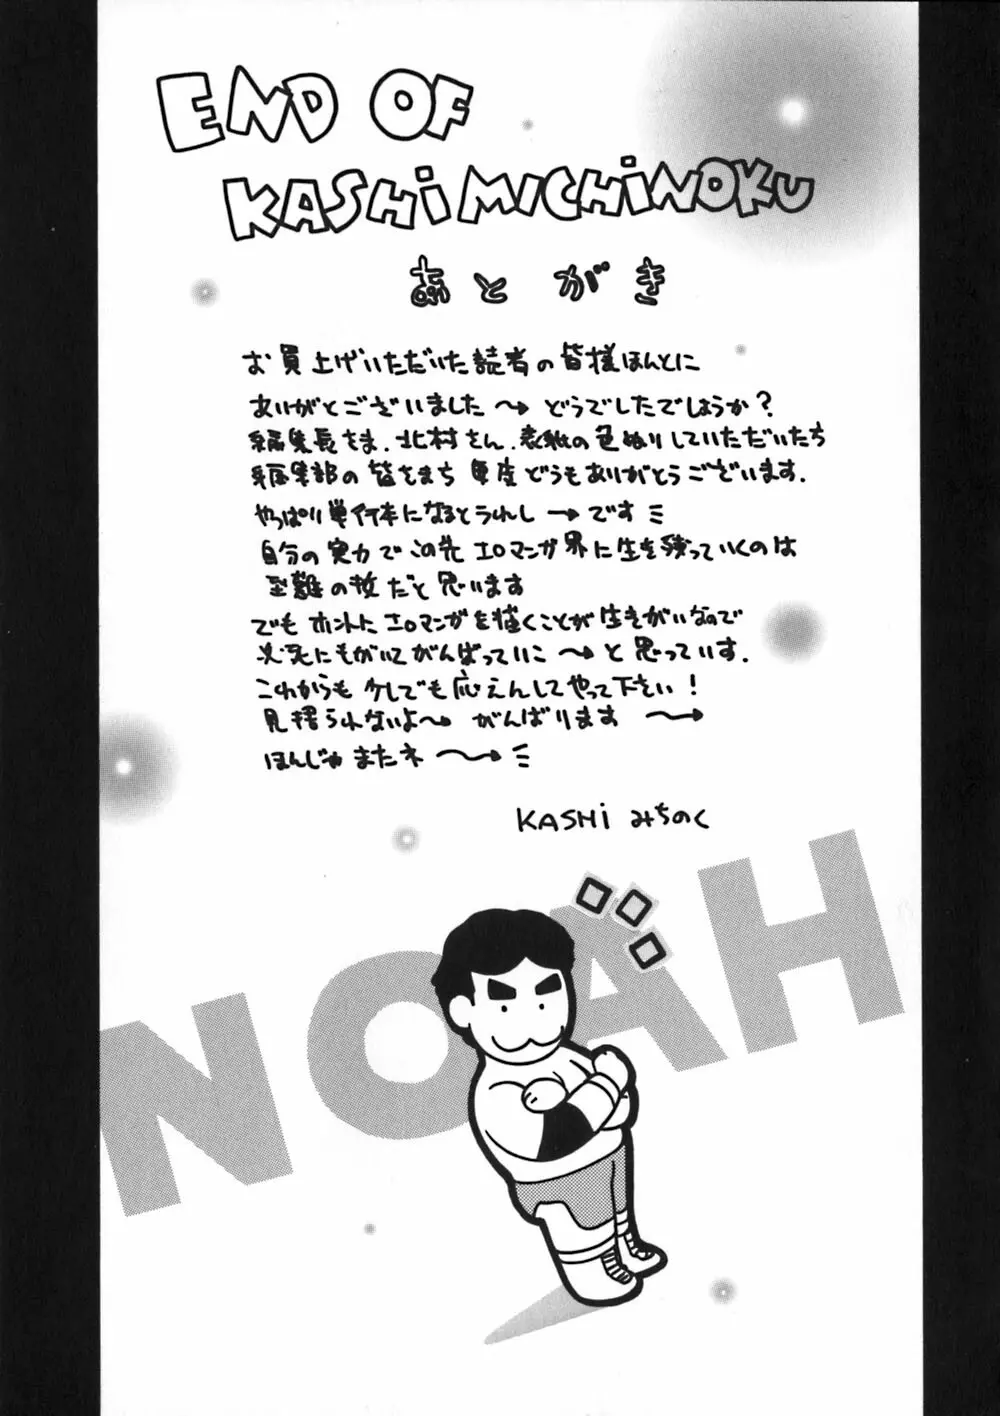 END OF
KASHIMICHINOKU
あとがき
お買上げいただいた読者の皆様ほんとに
ありがとございました〜→どうでしたでしょうか？
編集長さま．北村さん．表紙の色ぬりしていただいたち
編集部の皆さまち 毎度どうもありがとうございます．
やっぱり単行本になるとうれし〜→です
自分の実力でこの先エロマンガ界に生き残っていくのは
至難の技だと思います
でもホントにエロマンガを描くことが生きがいなので
必死にもがいてがんばっていこ〜→と思っています．
これからも少しでも応えんしてやって下さい！
見捨られないよ〜→がんばります〜→
ほんじゃまたネ〜→
KASHIみちのく
NOAH